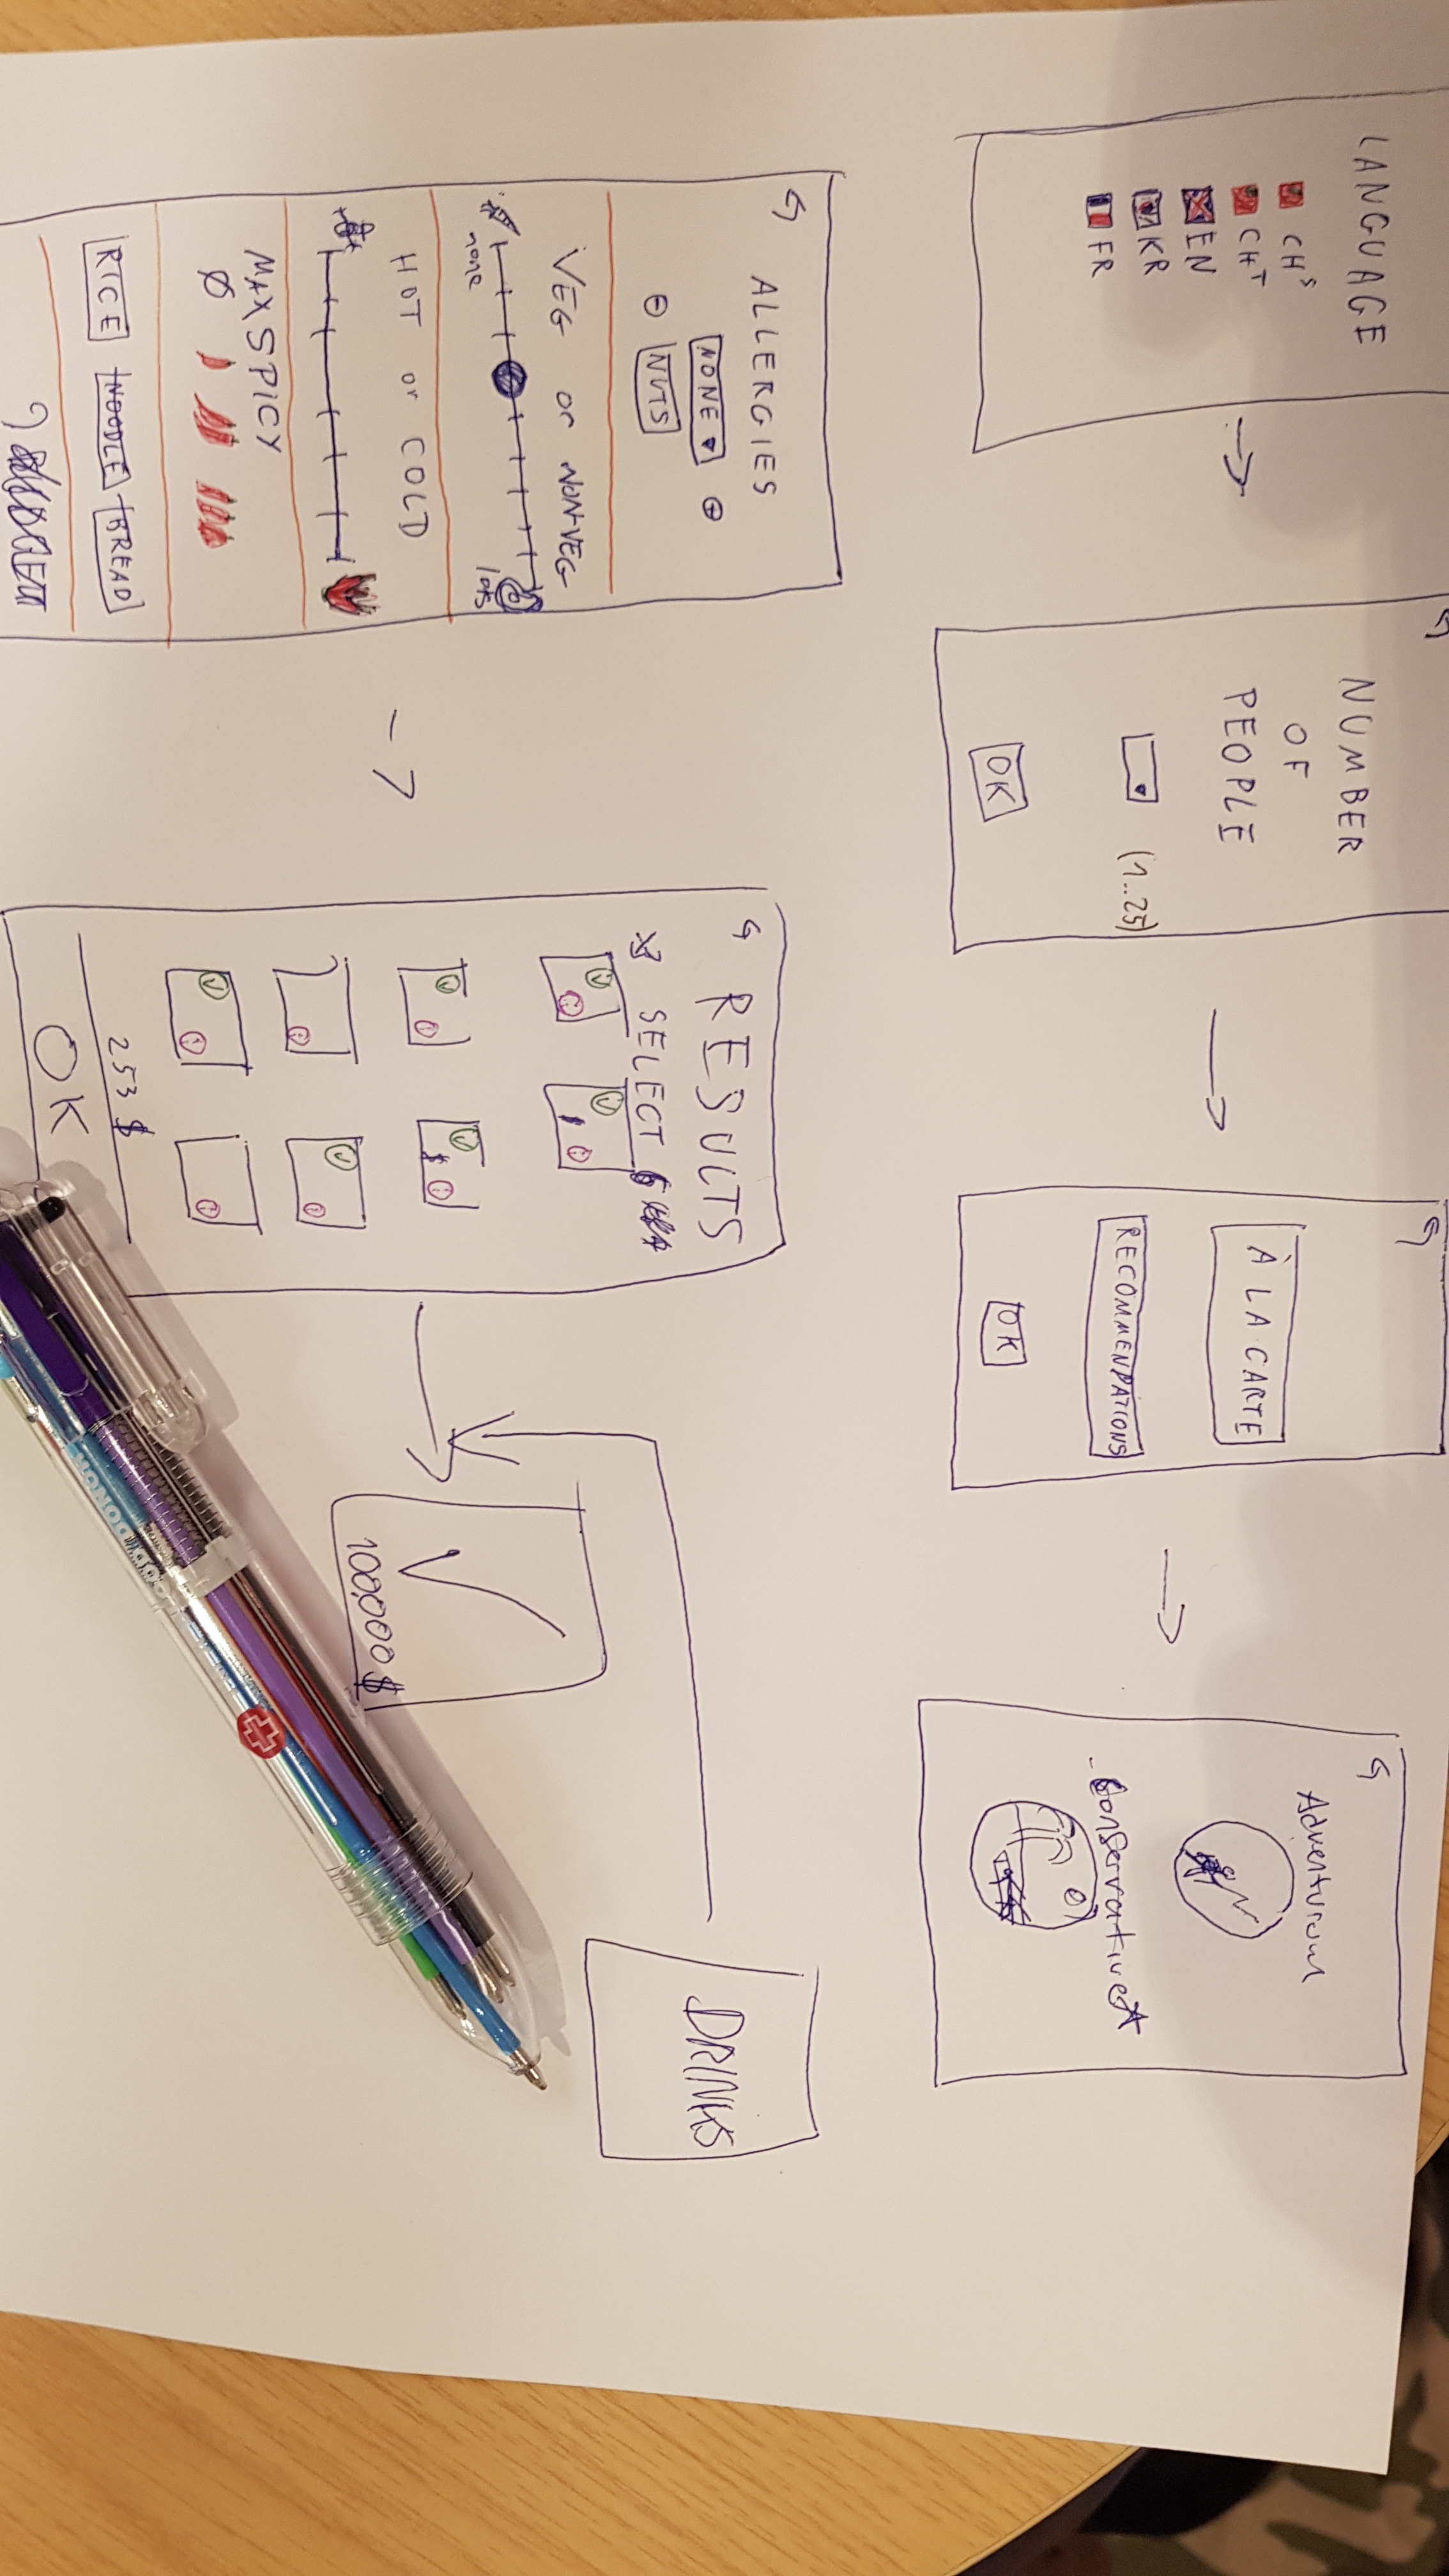 LANGUAGE
CH S
CH T
EN
KR
FR
NUMBER
OF
PEOPLE
(1..25)
OK
À LA CARTE
RECOMMENDATIONS
OK
Conservative
ALLERGIES
NONE
NUTS
VEG or NON-VEG
none lots
HOT or COLD
MAX SPICY
Ø
RICE NOODLE BREAD
RESULTS
SELECT
253 $
OK
DRINKS
100,000 $
LONDON